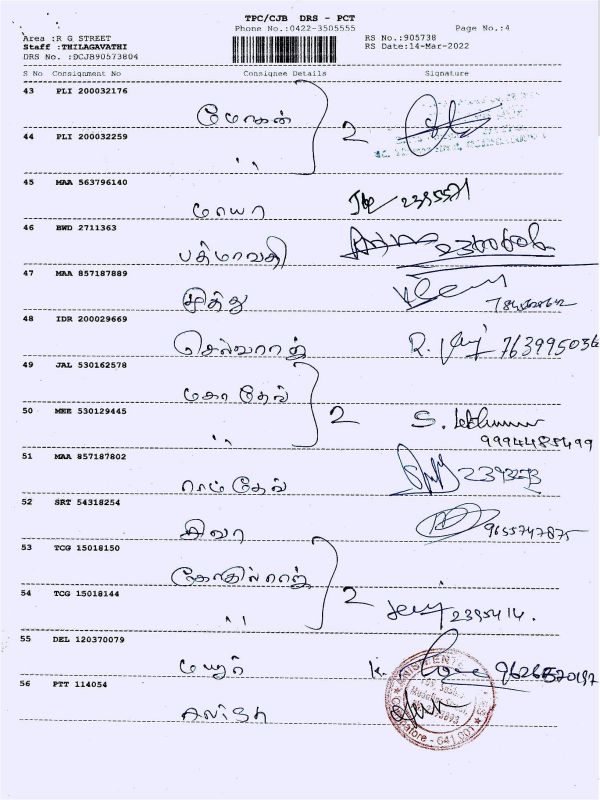 TPC/CJB DRS - PCT
Phone No.:0422-3505555 Page No.:4
Area :R G STREET RS No.:905738
Staff :THILAGAVATHI RS Date:14-Mar-2022
DRS No. :DCJB90573804
S No Consignment No Consignee Details Signature
43 PLI 200032176
மோகன் 2
44 PLI 200032259
,,
45 MAA 563796140
மாயா 2395571
46 BWD 2711363
பத்மாவதி
47 MAA 857187889
முத்து
48 IDR 200029669
செல்வராஜ் R. 763995036
49 JAL 530162578
மகாதேவ் 2
50 MEE 530129445
,, S. 9994485499
51 MAA 857187802
ராம்தேவ்
52 SRT 54318254
சிவா 9655747875
53 TCG 15018150
கோதில்ராஜ் 2
54 TCG 15018144
,, 2395414.
55 DEL 120370079
மயூர் K. 9626520197
56 PTT 114054
கவிதா